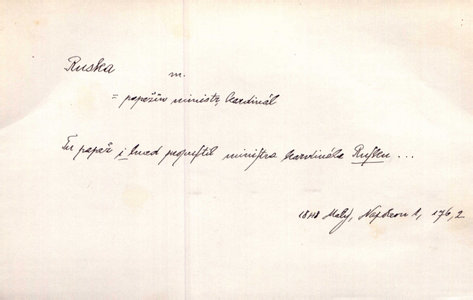 Ruska
m.
= papežův ministr, kardinál
Tu papež i hned propustil ministra kardinála Rusku ...
1848 Malý, Napoleon 1, 176,2